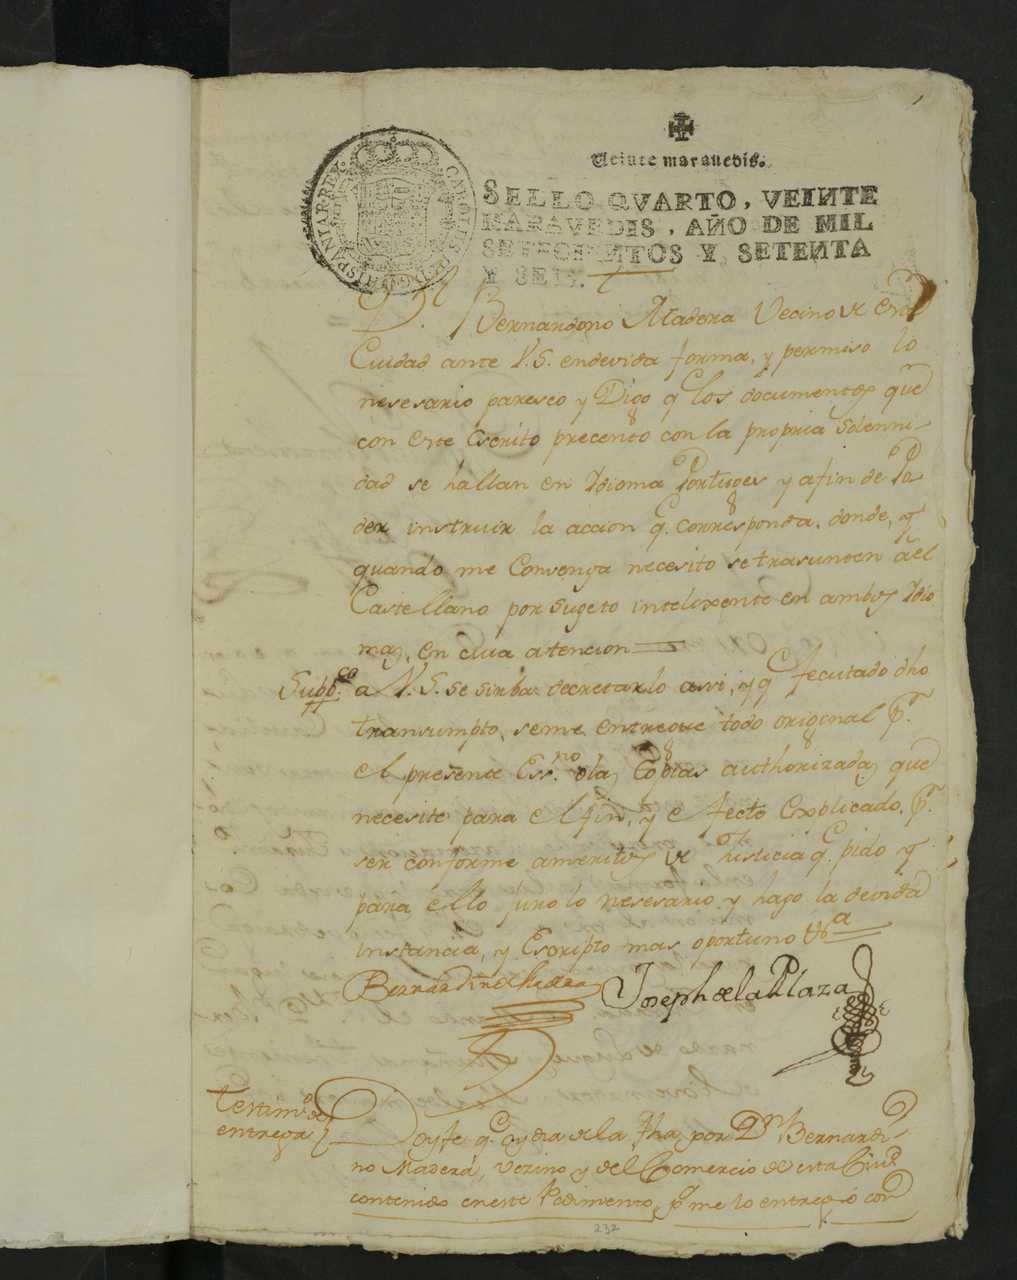 Veinte marauedis.
SELLO QVARTO, VEINTE
MARAVEDIS, AÑO DE MIL
SETECIENTOS Y SETENTA
Y SEIS.
CAROLUS III D.G. HISPANIAR REX
Dn Bernardono Madera Vecino de esta
Cuidad ante V.S. endevida forma, y permiso lo
nesesario paresco y Digo q los documentos que
con este Escrito precento con la propria Solenni-
dad se hallan en Idioma Portuges y afin de Po
der instruir la accion q. corresponda, donde, y
quando me Convenga necesito se trasunten ael
Castellano por Sugeto intelixente en ambos Idio
mas, en cuia atencion
Suppco a V.S. se sirba decretarlo assi, y q fecutado dho
transumpto, seme entregue todo original pr.
el presente Essno. olas Copias authorizadas que
necesite para el fin, y efecto Explicado, pr.
ser conforme ameritos de Justicia q. pido y
para ello juro lo nesesario y hago la devida
instancia, y Escripto mas oportuno &a
Bernardino Madera Joseph de la Plaza
Testimo de
entrega
Doyfe q. oydia de la fha, por Dn Bernardi-
no Madera, vezino y del Comercio de esta Ciud
contenido eneste Pedimento, se me lo entregó con
232